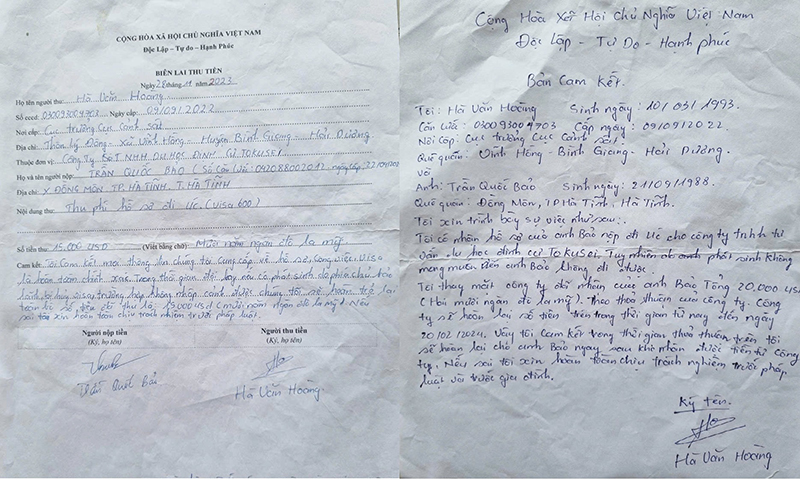 CỘNG HÒA XÃ HỘI CHỦ NGHĨA VIỆT NAM
Độc Lập – Tự do – Hạnh Phúc
BIÊN LAI THU TIỀN
Ngày 28 tháng 11 năm 2023
Họ tên người thu: Hà Văn Hoàng
Số cccd: 030093004703 Ngày cấp: 09/09/2022
Nơi cấp: Cục trưởng Cục Cảnh sát
Địa chỉ: Thôn Lý Đông - Xã Vĩnh Hồng - Huyện Bình Giang - Hải Dương
Thuộc đơn vị: Công ty NHH DU HỌC ĐỊNH CƯ TOKUSEI
Họ và tên người nộp: TRẦN QUỐC BẢO (Số Căn cước: 042088002017 ngày cấp
Địa chỉ: X ĐỒNG MÔN TP. HÀ TĨNH, T. HÀ TĨNH
Nội dung thu: Thu phí hồ sơ đi Úc. (Visa 600)
Số tiền thu: 15.000 USD (Viết bằng chữ): Mười năm ngàn đô la mỹ
Cam kết: Tôi Cam kết mọi thông tin chúng tôi cung cấp về hồ sơ, công việc, visa
là hoàn toàn chính xác. Trong thời gian đợi bay nếu có phát sinh
trường hợp không nhập cảnh được chúng tôi sẽ hoàn trả lại
toàn bộ số tiền đã thu là ngàn đô la mỹ). Nếu
sai tôi xin hoàn toàn chịu trách nhiệm trước pháp luật.
Người nộp tiền
(Ký, họ tên)
Trần Quốc Bảo
Người thu tiền
(Ký, họ tên)
Hà Văn Hoàng
Cộng Hòa Xã Hội Chủ Nghĩa Việt Nam
Độc Lập - Tự Do - Hạnh phúc
Bản Cam Kết.
Tôi: Hà Văn Hoàng Sinh ngày: 10/03/1993.
Căn cước: 030093004703 Cấp ngày: 09/09/2022
Nơi Cấp: Cục trưởng Cục Cảnh sát
Quê quán: Vĩnh Hồng - Bình Giang - Hải Dương.
Và
Anh: Trần Quốc Bảo Sinh ngày: 21/09/1988.
Quê quán: Đồng Môn, TP Hà Tĩnh, Hà Tĩnh.
Tôi xin trình bày sự việc như sau:
Tôi có nhận hồ sơ của anh Bảo nộp đi Úc cho công ty tnhh tư
vấn du học định cư TOKUSEI. Tuy nhiên do phát sinh không
mong muốn nên anh Bảo không đi được.
Tôi thay mặt công ty đã nhận của anh Bảo Tổng 20.000 usd
(Hai mươi ngàn đô la mỹ). Theo thoả thuận của công ty. Công
ty sẽ hoàn lại số tiền trên trong thời gian từ nay đến ngày
20/02/2024. Vậy tôi Cam kết trong thời gian thoả thuận trên tôi
sẽ hoàn lại cho anh Bảo ngay sau khi nhận được tiền từ Công
ty. Nếu sai tôi xin hoàn toàn chịu trách nghiệm trước pháp
luật và trước gia đình.
Ký tên.
Hà Văn Hoàng